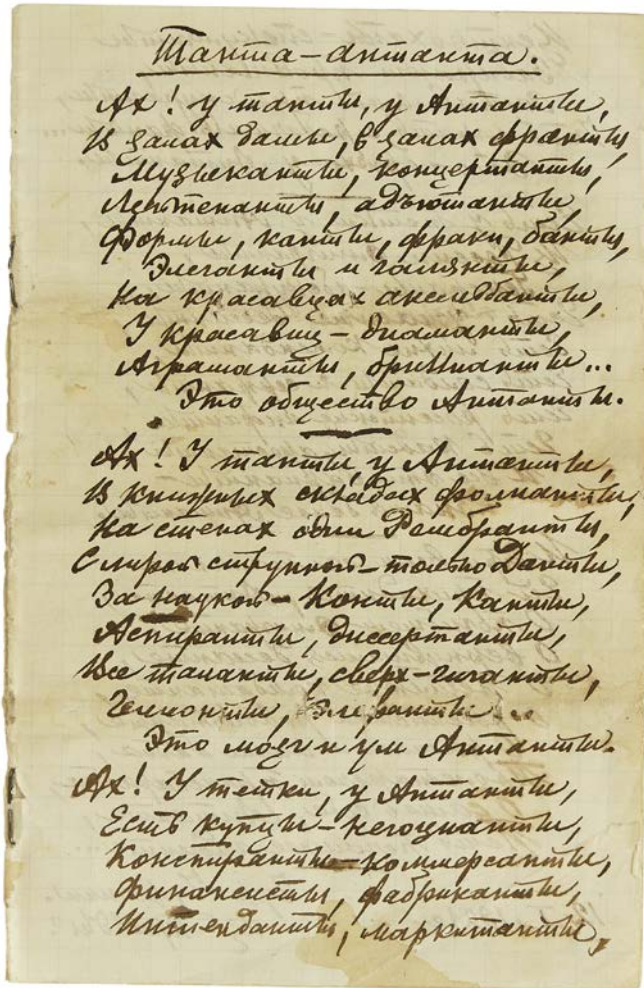 Танта-антанта.
Ах! у танты, у Антанты,
В залах дамы, в залах франты,
Музыканты, концертанты,
Лейтенанты, адъютанты,
Формы, канты, фраки, банты,
Элеганты и галянты,
На красавцах аксельбанты,
У красавиц - диаманты,
Аграманты, бриllианты...
Это общество Антанты.
Ах! У танты, у Антанты,
В книжных складах фолианты,
На стенах одни Рембранты,
С лирой струнной - только Данты,
За наукой - Конты, Канты,
Аспиранты, диссертанты,
Все таланты, сверх-гиганты,
Элефанты...
Это мозг и ум Антанты.
Ах! У тетки, у Антанты,
Есть купцы - негоцианты,
Конспиранты - коммерсанты,
Финансисты, фабриканты,
Интенданты, маркитанты,